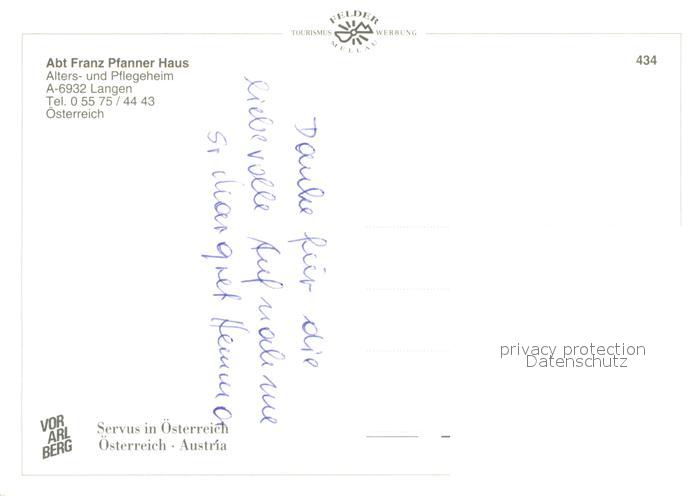 FELDER
TOURISMUS WERBUNG
MELLAU
Abt Franz Pfanner Haus
Alters- und Pflegeheim
A-6932 Langen
Tel. 0 55 75 / 44 43
Österreich
434
Danke für die
liebevolle Aufnahme
Sr Margret
privacy protection
Datenschutz
VOR
ARL
BERG
Servus in Österreich
Österreich · Austria